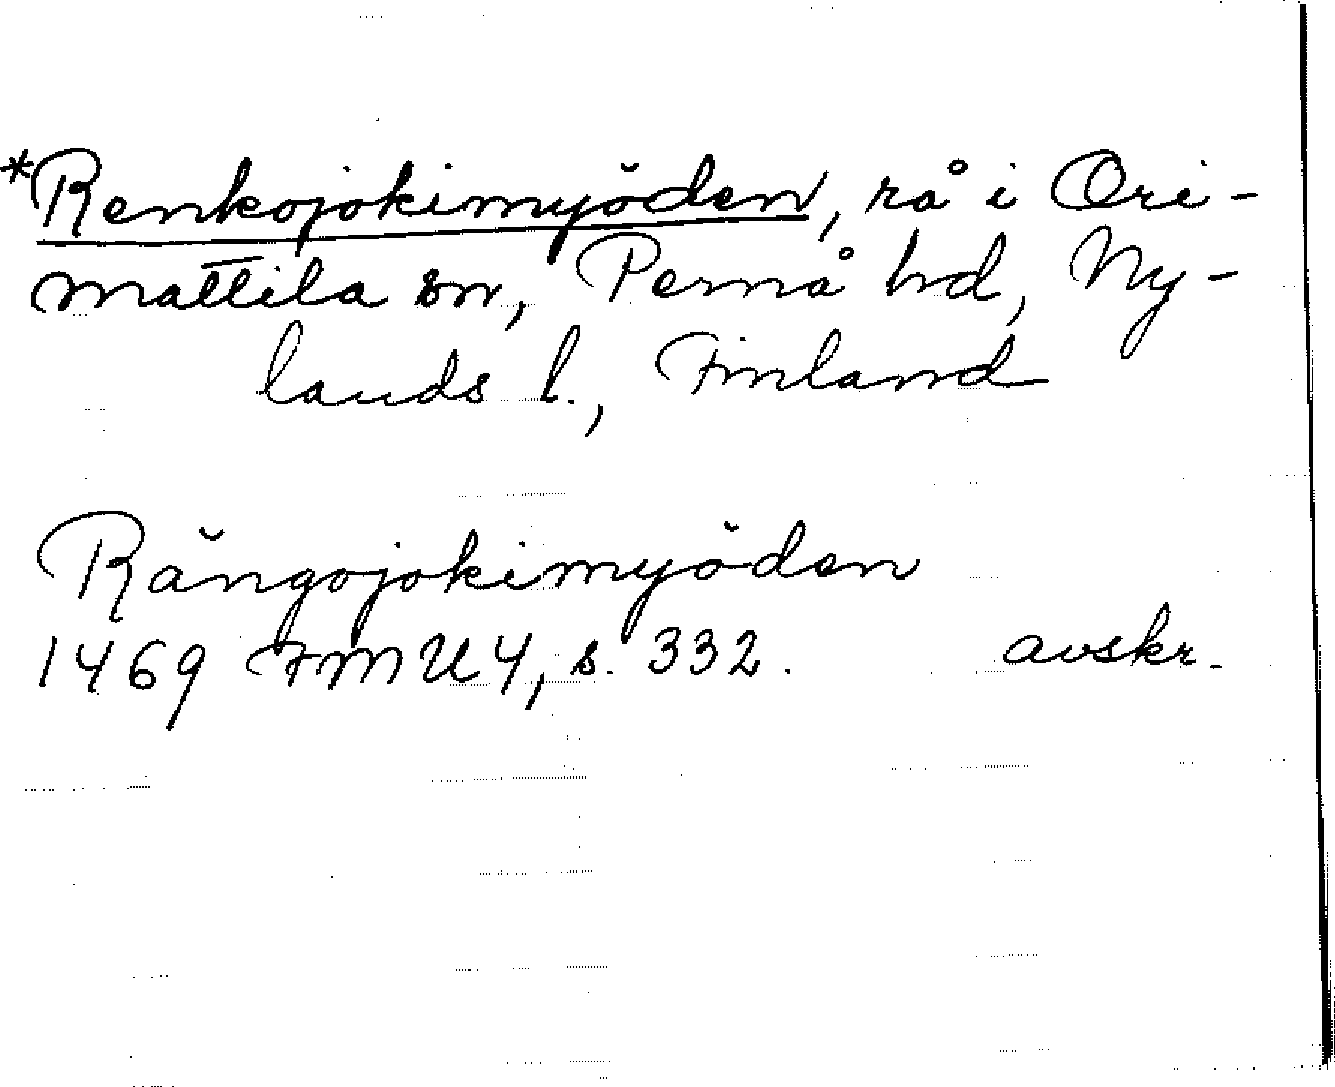 *Renkojokimyöden, rå i Ori-
mattila sn, Pernå hd, Ny-
lands l., Finland
Rängojokimyöden
1469 FMU 4, s. 332. avskr.